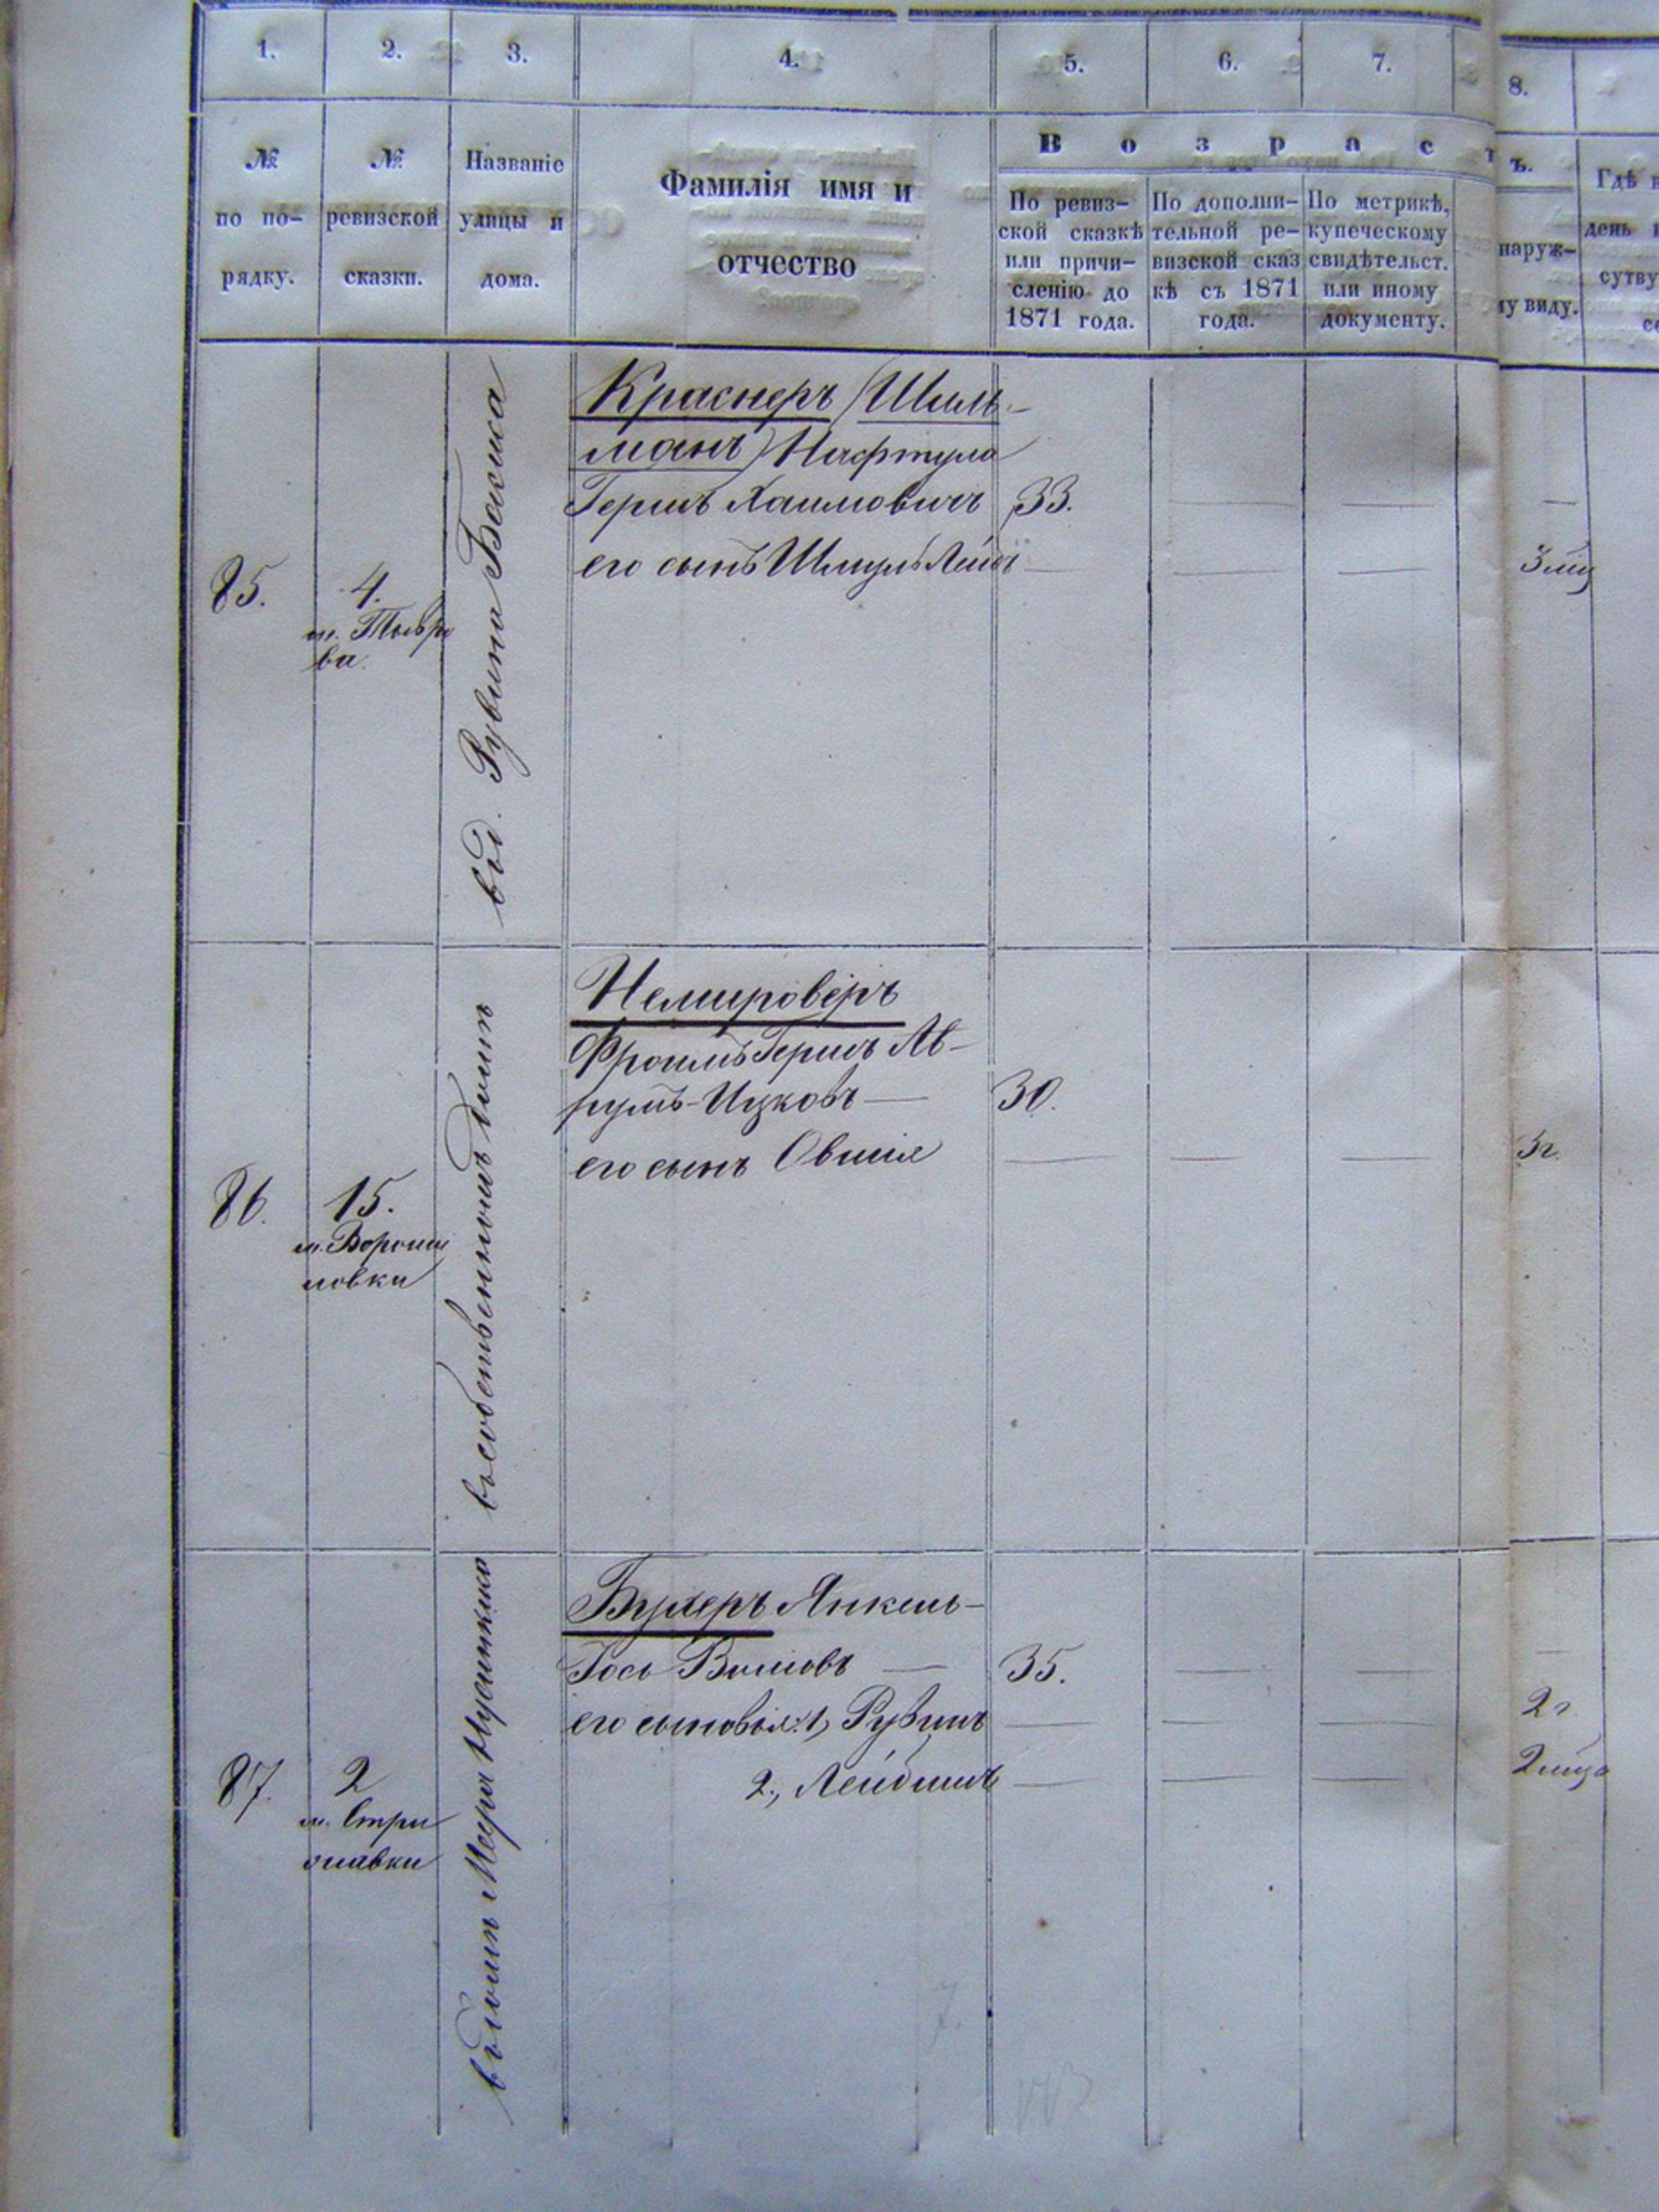 1. 2. 3. 4. 5. 6. 7. 8.
№ по по-
рядку.
№
ревизской
сказки.
Названіе
улицы и
дома.
Фамилія имя и
отчество
В о з р а с т ъ.
По ревиз-
ской сказкѣ
или причи-
сленію до
1871 года.
По дополни-
тельной ре-
визской сказ
кѣ съ 1871
года.
По метрикѣ,
купеческому
свидѣтельст.
или иному
документу.
наруж-
му виду.
Гдѣ
день
сутву
85.
4.
м. Тывро
ва.
въ д. Рувина Басиса
Краснеръ (Шиль-
манъ) Нафтула
Гершъ Хаимовичъ 33. — — —
его сынъ Шмуль Лейбъ — — — 3 мц
86.
15.
м. Вороши
ловки
въ собственномъ домѣ
Немироверъ
Фроимъ Гершъ Ав-
румъ-Ицковъ — 30.
его сынъ Овшія — — — 3 г.
87.
2
м. Стри
жавки
въ домѣ Меера
Бухеръ Янкель-
Іось Волковъ — 35. — — —
его сыновья: 1, Рувинъ — — — 2 г.
2., Лейбишъ — — —